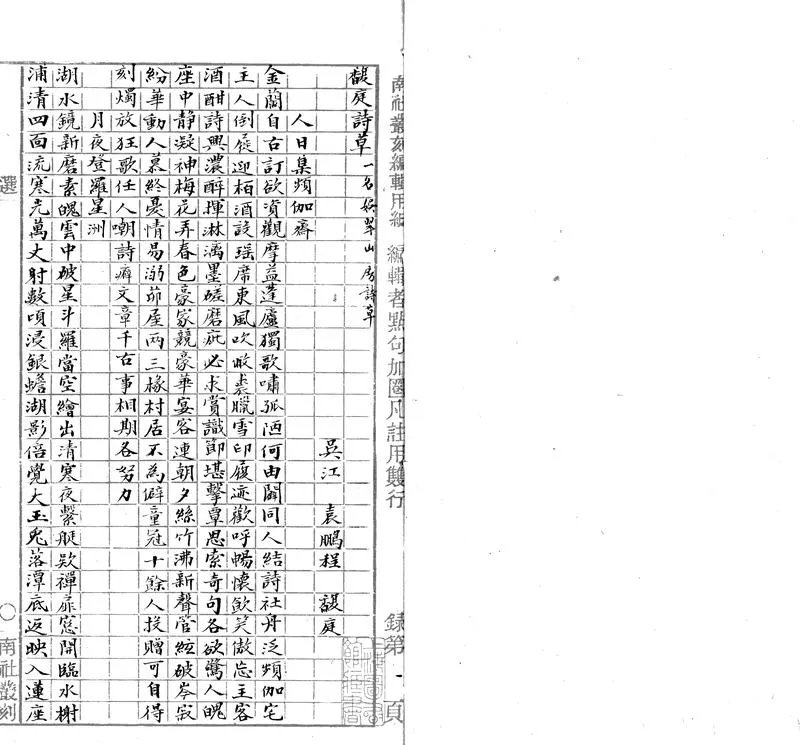 南社叢刻編輯用紙　編輯者點句加圈凡註用雙行　錄第一頁
馥庭詩草 一名 翠山房詩草
吳江　袁鵬程　馥庭
人日集頻伽齋
金蘭自古訂欲資觀摩益蓬廬獨歌嘯孤陋何由闢同人結詩社舟泛頻伽宅
主人倒屣迎柏酒設瑤席東風吹敝裘臘雪印屐迹歡呼暢懷飲笑傲忘主客
酒酣詩興濃醉揮淋漓墨磋磨疵必求賞識節堪擊覃思索奇句各欲驚人魄
座中靜凝神梅花弄春色豪家競豪華宴客連朝夕絲竹沸新聲管絃破岑寂
紛華動人慕終憂情易溺茆屋兩三椽村居不為僻童冠十餘人投贈可自得
刻燭放狂歌任人嘲詩癖文章千古事相期各努力
月夜登羅星洲
湖水鏡新磨素魄雲中破星斗羅當空繪出清寒夜繫艇欵禪扉窓開臨水榭
浦清四面流寒光萬丈射數頃浸銀蟾湖影倍覺大玉兎落潭底返映入蓮座
選
南社叢刻